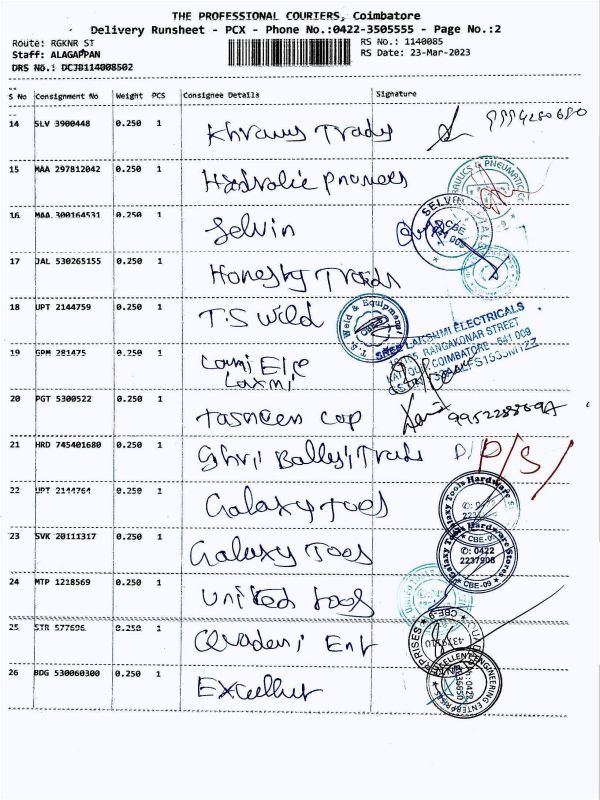 THE PROFESSIONAL COURIERS, Coimbatore
Delivery Runsheet - PCX - Phone No.:0422-3505555 - Page No.:2
Route: RGKNR ST
RS No.: 1140085
Staff: ALAGAPPAN
RS Date: 23-Mar-2023
DRS No.: DCJB114008502
S No Consignment No Weight PCS Consignee Details Signature
14 SLV 3900448 0.250 1 Trady
15 MAA 297812042 0.250 1
16 MAA 300164531 0.250 1 Selvin
SELVIN
CBE
17 JAL 530265155 0.250 1 Honesty Trads
18 UPT 2144759 0.250 1 T.S Weld
T.S Weld & Equipments
19 GPM 281475 0.250 1 Laxmi Ele
Laxmi
SREE LAKSHMI ELECTRICALS
RANGAKONAR STREET
COIMBATORE - 641 009
20 PGT 5300522 0.250 1 Tasneem Cop
21 HRD 745401680 0.250 1 Shri Balaji Trads P/S/
22 UPT 2144764 0.250 1 Galaxy Tools
Galaxy Tools Hardware
23 SVK 20111317 0.250 1 Galaxy Tools
Galaxy Tools Hardware Stores
CBE-09
✆: 0422
2237908
CBE-09
24 MTP 1218569 0.250 1 United tools
25 STR 577696 0.250 1 Ent
26 BDG 530060300 0.250 1 Excellent
EXCELLENT ENGINEERING ENTERPRISES